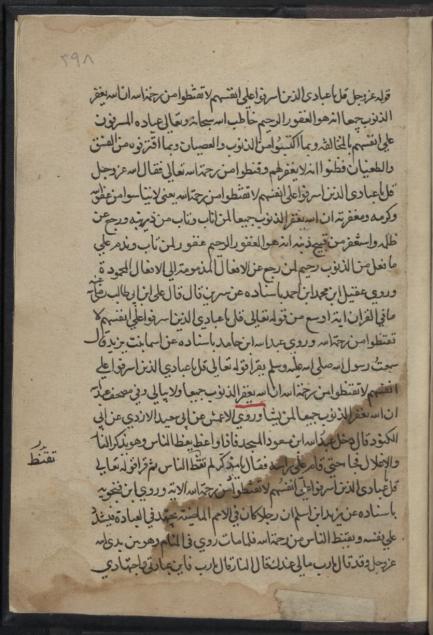 ٢٩٨
قوله عز وجل قل يا عبادي الذين اسرفوا على انفسهم لا تقنطوا من رحمة الله ان الله يغفر
الذنوب جميعا انه هو الغفور الرحيم خاطب الله سبحانه وتعالى عباده المسرفين
على انفسهم بالمخالفة وبما اكتسبوا من الذنوب والعصيان وبما اقترفوه من الفسق
والطغيان فظنوا انه لا يغفر لهم وقنطوا من رحمة الله تعالى فقال الله عز وجل
قل يا عبادي الذين اسرفوا على انفسهم لا تقنطوا من رحمة الله يعني لا تيأسوا من عفو الله
وكرمه ومغفرته ان الله يغفر الذنوب جميعا لمن اناب وتاب من ذنوبه ورجع عن
ظلمه واستغفر من قبيح ذنبه انه هو الغفور الرحيم غفور لمن تاب وندم على
ما فعل من الذنوب رحيم لمن رجع عن الافعال المذمومة الى الافعال المحمودة
وروي عقيل بن محمد بن احمد باسناده عن سيرين قال قال علي ابن ابي طالب
ما في القران اية اوسع من قوله تعالى قل يا عبادي الذين اسرفوا على انفسهم لا
تقنطوا من رحمة الله وروي عبد الله بن حامد باسناده عن اسما بنت يزيد قال
سمعت رسول الله صلى الله عليه وسلم يقرا قوله تعالى قل يا عبادي الذين اسرفوا على
انفسهم لا تقنطوا من رحمة الله ان الله يغفر الذنوب جميعا ولا يبالي وفي مصحف عبد الله
ان الله يغفر الذنوب جميعا لمن يشا وروي الاعمش عن ابي سعيد الازدي عن ابي
الكنود قال دخل عبد الله ابن مسعود المسجد فاذا واعظ يعظ الناس وهو يذكر النار
والاغلال فجا حتى قام على راسه فقال يا مذكر لم تقنط الناس ثم قرا قوله تعالى
تقنط
قل يا عبادي الذين اسرفوا على انفسهم لا تقنطوا من رحمة الله الاية وروي ابن فنجويه
باسناده عن زيد ابن اسلم ان رجلا كان في الامم الماضية يجتهد في العبادة فيشدد
على نفسه ويقنط الناس من رحمة الله فلما مات روي في المنام وهو بين يدي الله
عز وجل وقد قال يا رب مالي عندك قال النار قال يا رب فاين عبادتي واجتهادي